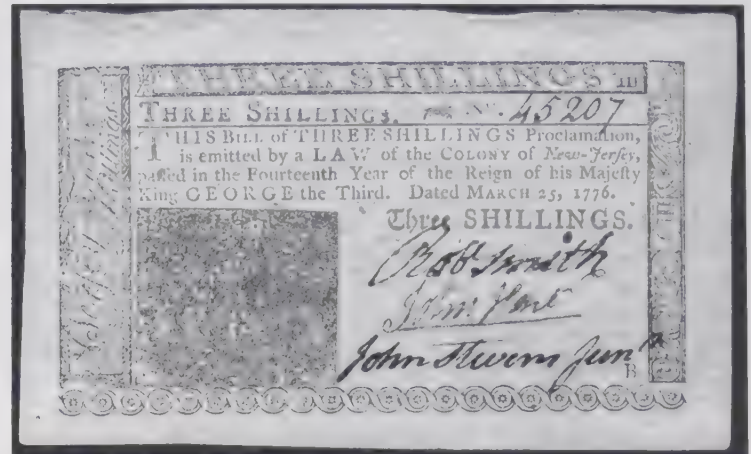 THREE SHILLINGS
THREE SHILLINGS. No. 45207
THIS BILL of THREE SHILLINGS Proclamation,
is emitted by a LAW of the COLONY of New-Jersey,
passed in the Fourteenth Year of the Reign of his Majesty
King GEORGE the Third. Dated MARCH 25, 1776.
Three SHILLINGS.
Robt Smith
John
John Stevens Junr
B